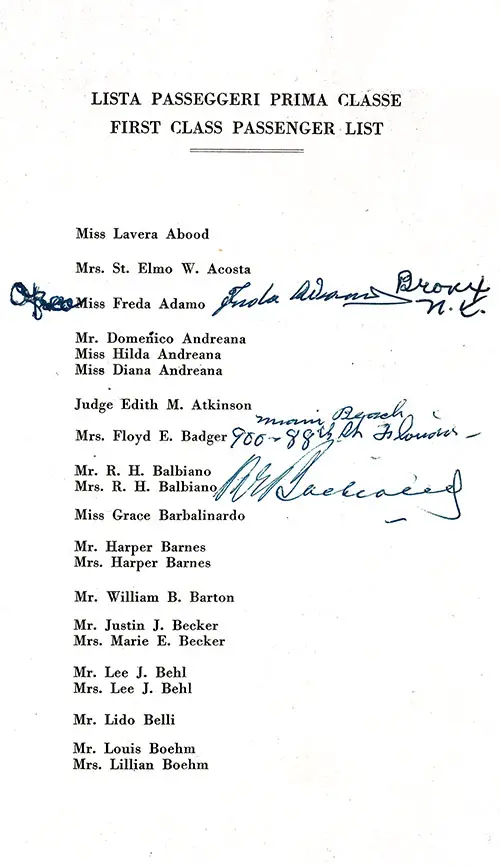 LISTA PASSEGGERI PRIMA CLASSE
FIRST CLASS PASSENGER LIST
Miss Lavera Abood
Mrs. St. Elmo W. Acosta
Miss Freda Adamo Freda Adamo Bronx
N.Y.
Mr. Domenico Andreana
Miss Hilda Andreana
Miss Diana Andreana
Judge Edith M. Atkinson
Miami Beach
Mrs. Floyd E. Badger 900-88th St Florida
Mr. R. H. Balbiano
Mrs. R. H. Balbiano
Miss Grace Barbalinardo
Mr. Harper Barnes
Mrs. Harper Barnes
Mr. William B. Barton
Mr. Justin J. Becker
Mrs. Marie E. Becker
Mr. Lee J. Behl
Mrs. Lee J. Behl
Mr. Lido Belli
Mr. Louis Boehm
Mrs. Lillian Boehm